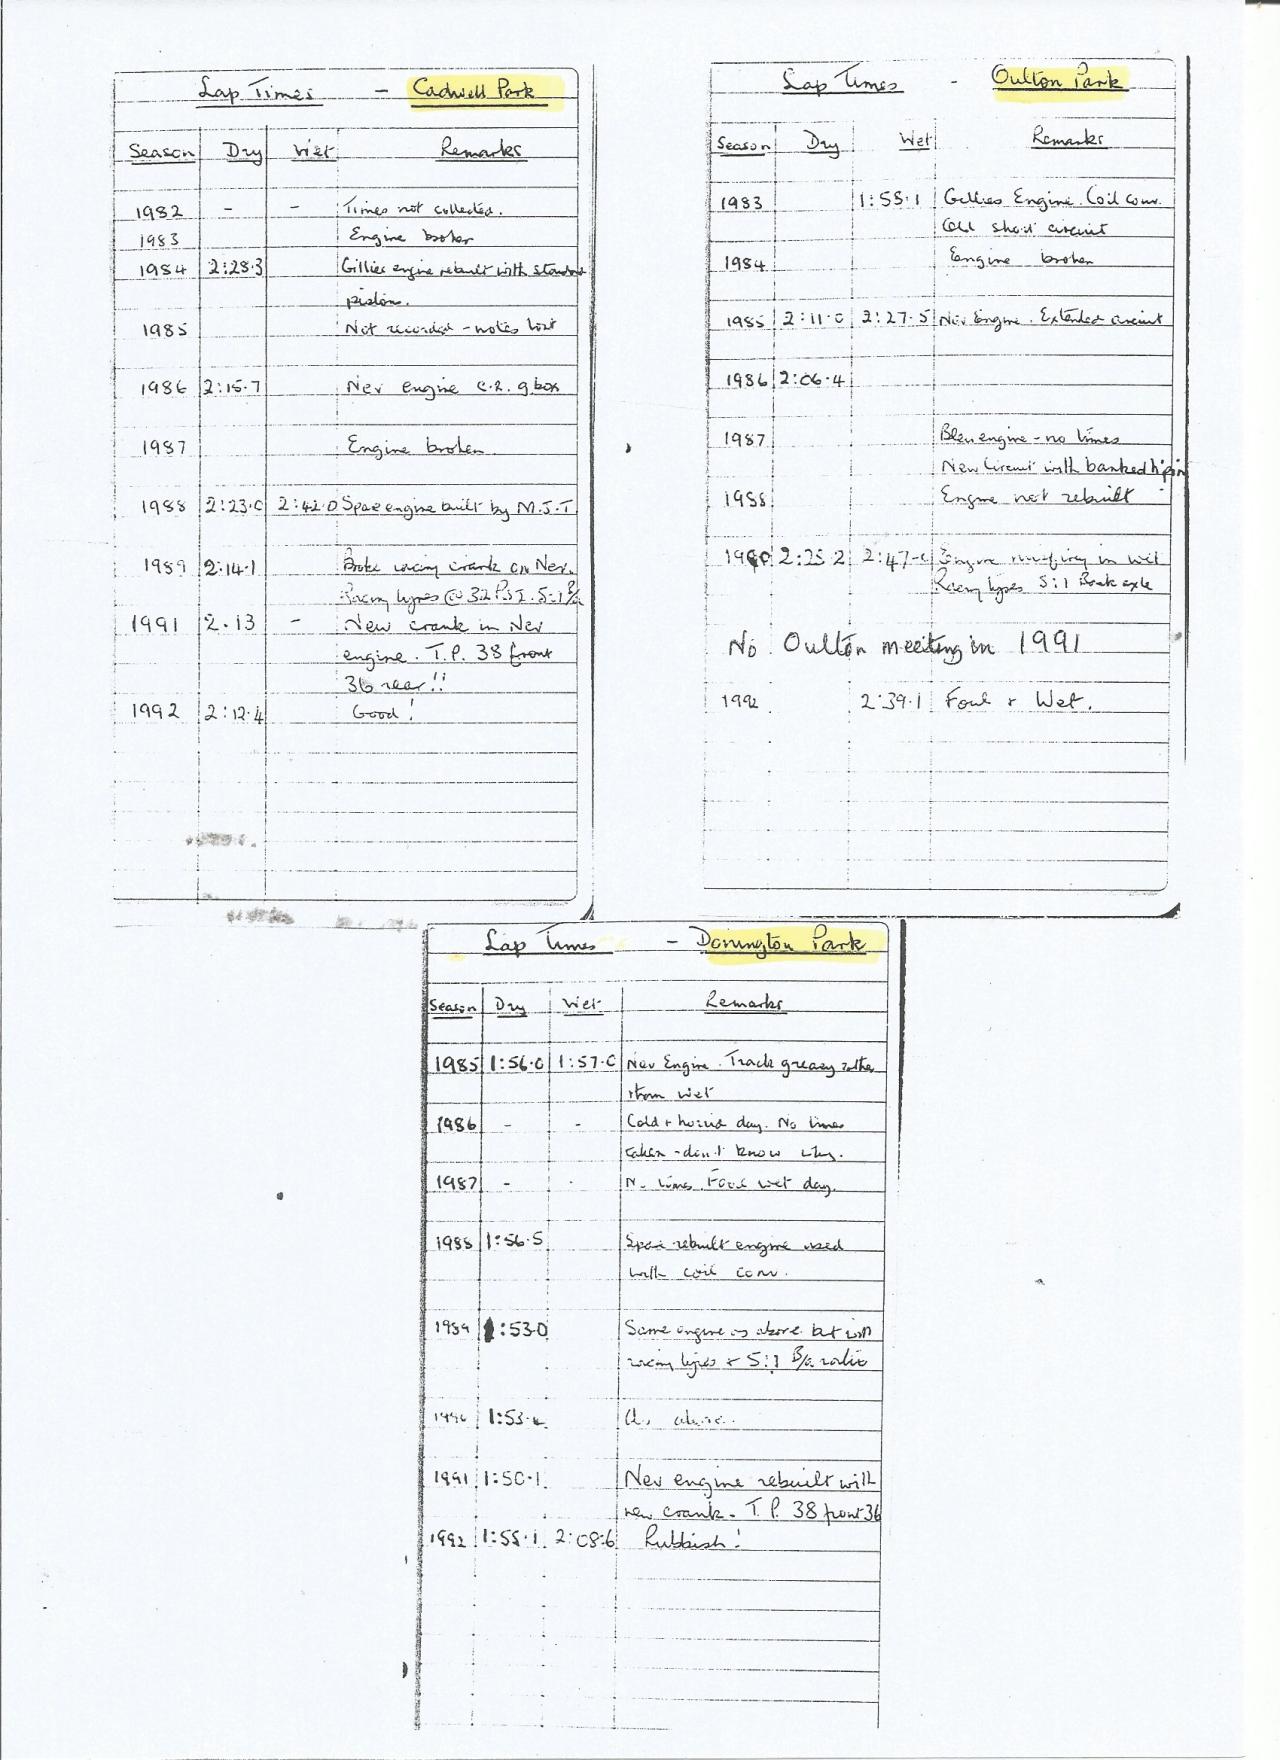 Lap Times - Cadwell Park
Season Dry Wet Remarks
1982 - - Times not collected.
1983 Engine broken
1984 2:28.3 Gillies engine rebuilt with standard
piston.
1985 Not recorded - notes lost
1986 2:15.7 Nev engine C.R. g.box
1987 Engine broken
1988 2:23.0 2:42.0 Spare engine built by M.J.T.
1989 2:14.1 Broke racing crank on Nev.
Racing tyres @ 32 PSI. 5:1 B/a
1991 2.13 - New crank in Nev
engine. T.P. 38 front
36 rear!!
1992 2:12.4 Good!
Lap Times - Oulton Park
Season Dry Wet Remarks
1983 1:55.1 Gillies Engine. Coil conv.
Old short circuit
1984 Engine broken
1985 2:11.0 2:27.5 Nev Engine. Extended circuit
1986 2:06.4
1987 Blew engine - no times
New Circuit with banked h'pin
1988 Engine not rebuilt
1990 2:25.2 2:47. Engine misfiring in wet
Racing tyres 5:1 Back axle
No Oulton meeting in 1991
1992 2:39.1 Foul & Wet.
Lap Times - Donington Park
Season Dry Wet Remarks
1985 1:56.0 1:57.0 Nev Engine. Track greasy rather
than wet
1986 - - Cold + horrid day. No times
taken - don't know why.
1987 - - No times. Foul wet day.
1988 1:56.5 Spare rebuilt engine used
with coil conv.
1989 1:53.0 Same engine as above but with
racing tyres & 5:1 B/a ratio
1990 1:53. As above.
1991 1:50.1 Nev engine rebuilt with
new crank. T.P. 38 front 36
1992 1:55.1 2:08.6 Rubbish!